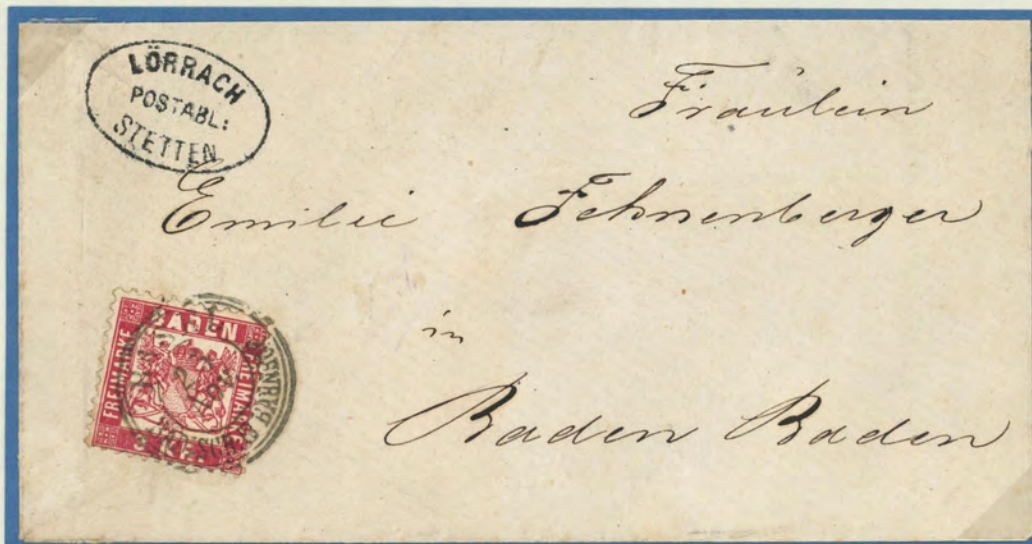 LÖRRACH
POSTABL:
STETTEN
Fräulein
Emilie Fehrenberger
in
Baden Baden
BADEN
FREIMARKE
FREIMARKE
3 KR.